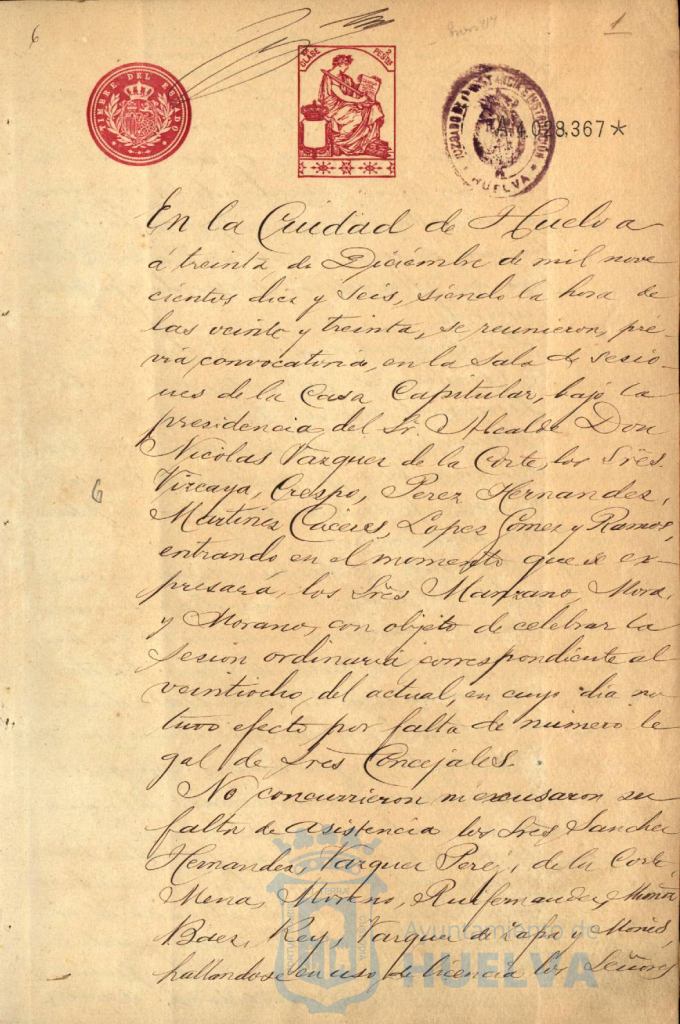 6
1
TIMBRE DEL ESTADO
8ª CLASE 2 PESETAS
JUZGADO DE 1ª INSTANCIA E INSTRUCCION
HUELVA
A 4.028.367*
En la Ciudad de Huelva
á treinta de Diciembre de mil nove
cientos diez y seis, siendo la hora de
las veinte y treinta, se reunieron, pré-
via convocatoria, en la Sala de sesio-
nes de la Casa Capitular, bajo la
presidencia del Sr. Alcalde Don
Nicolas Vazquez de la Corte, los Srēs.
Vizcaya, Crespo, Perez Hernandez,
6
Martinez Cáceres, Lopez Gomez y Ramos,
entrando en el momento que se ex-
presará, los Srēs Manzano, Mora,
y Morano, con objeto de celebrar la
sesion ordinaria correspondiente al
veintiocho del actual, en cuyo dia no
tuvo efecto por falta de número le
gal de Srēs Concejales.
No concurrieron ni excusaron su
falta de asistencia los Srēs Sanchez
Hernandez, Vazquez Perez, de la Corte
Mena, Moreno, Ruifernandez,
Baez, Rey, Vazquez de Zafra y
hallandose en uso de licencia los Señores
Ayuntamiento de
HUELVA